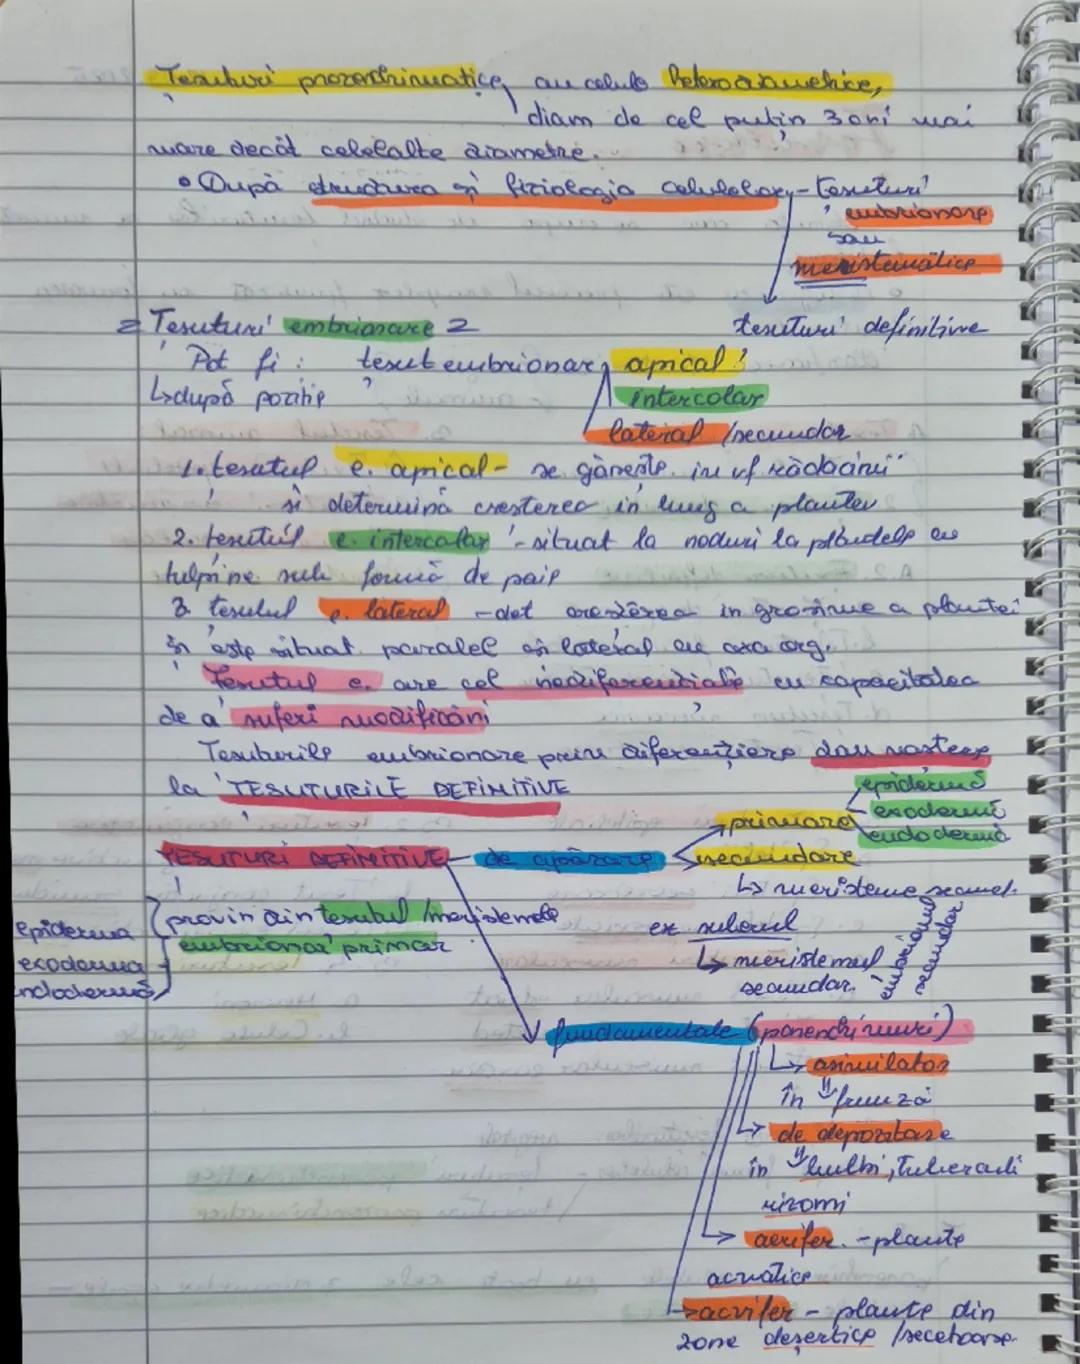 Tesuturi prozenchimatice, au celule heteroaiametrice,
diam de cel putin 3 ori mai
mare decât celelalte diametre.
• După structura și fiziologia celulelor - tesuturi
embrionare
sau
meristematice
tesuturi definitive
= Tesuturi embrionare 2
Pot fi : tesut embrionar apical
↳după poziție
intercolar
lateral /secundar
1. tesutul e. apical - se găsește în vf rădăcinii
și determină creșterea în lung a plantei
2. tesutul e. intercalar - situat la noduri la plantele cu
tulpine sub formă de paie
3. tesutul e. lateral - det creșterea in grosime a plantei
și este situat paralel și lateral cu axa org.
Tesutul e. are cel nediferentiate cu capacitatea
de a suferi modificări
Tesuturile embrionare prin diferențiere dau nastere
la TESUTURILE DEFINITIVE
epidermă
exodermă
endodermă
primare
TESUTURI DEFINITIVE - de apărare
secundare
↳ meristeme secund.
epiderma
exoderma
endodermă
provin din tesutul /meristemele
embrionar primar
ex suberul
↳ meristemul
secundar.
embrionul
secundar
fundamentale (parenchimuri)
↳ asimilator
în frunză
↳ de depozitare
în bulbi, tuberculi
rizomi
↳ aerifer. - plante
acvatice
→ acvifer - plante din
zone deșertice /secetoase.